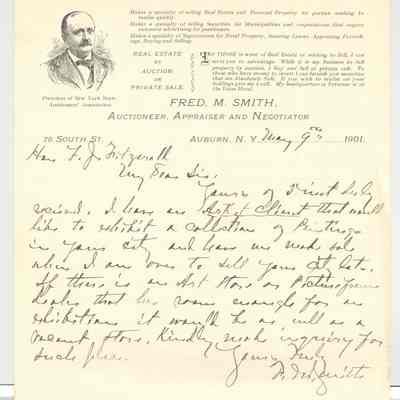 Makes a specialty of selling Real Estate and Personal Property for parties wishing to
realize quickly.
Makes a specialty of selling Securities for Municipalities and corporations that require
extensive advertising for purchasers.
Makes a specialty of Supervision for Rural Property, Insuring Losses, Appraising
Buying and Selling.
REAL ESTATE
BY
AUCTION
OR
PRIVATE SALE.
To THOSE in want of Real Estate or wishing to sell, I can
be of advantage. While it is my business to sell
property by auction, I buy and sell at private sale. To
those who have money to invest I can furnish you securities
that are Absolutely Safe. If you wish to realize on your
holdings give me a call. My headquarters in Syracuse is at
the Yates Hotel.
President of New York State
Auctioneers' Association.
FRED. M. SMITH,
AUCTIONEER, APPRAISER AND NEGOTIATOR
76 SOUTH ST.
AUBURN, N. Y. May 9th 1901.
Hon. F. J. Fitzerath
My Dear Sir:
Yours of 7 inst duly
received. I have an Art Client that would
like to exhibit a collection of Paintings
in your city and have me make sale
when I am over to sell yours at date.
If there is an Art Store or Picture frame
dealer that has room enough for an
exhibition it would be as well as a
vacant store. Kindly make inquiry for
such place.
Yours Truly
F. M. Smith